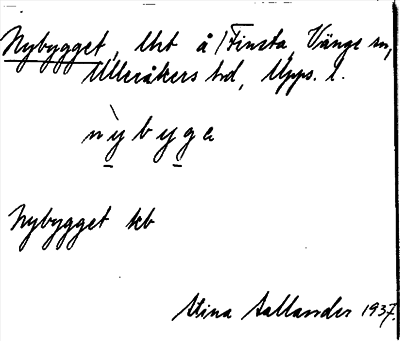 Nybygget, Uht å /Finsta, Vänge sn,
Ulleråkers hd, Upps. l.
nỳbyge
Nybygget kb
Stina Sallander 1937.